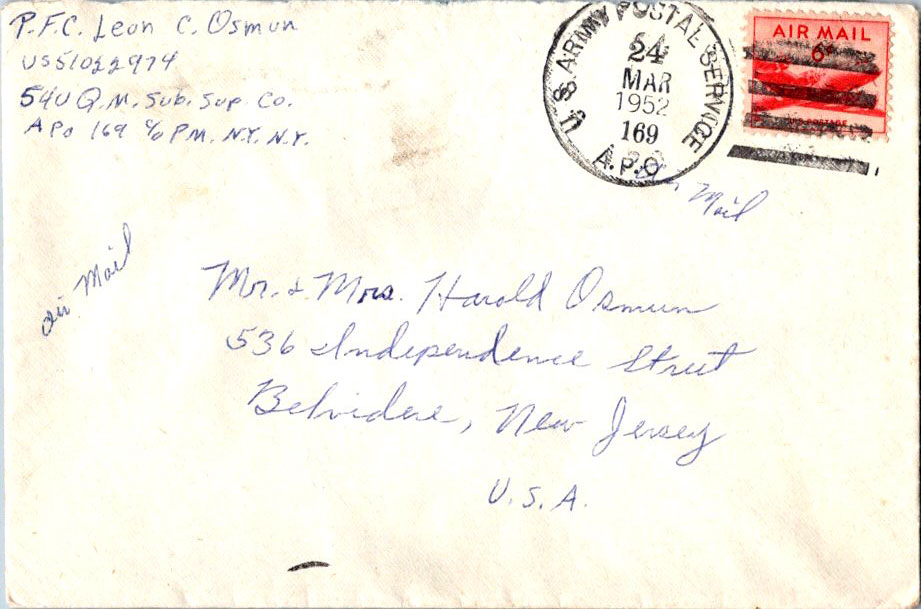 P.F.C. Leon C. Osmun
US51022974
540 Q.M. Sub. Sup. Co.
APO 169 c/o P.M. N.Y. N.Y.
U.S. ARMY POSTAL SERVICE
24
MAR
1952
169
A.P.O
AIR MAIL
6¢
POSTAGE
Air Mail
Air Mail
Mr. & Mrs. Harold Osmun
536 Independence Street
Belvidere, New Jersey
U.S.A.